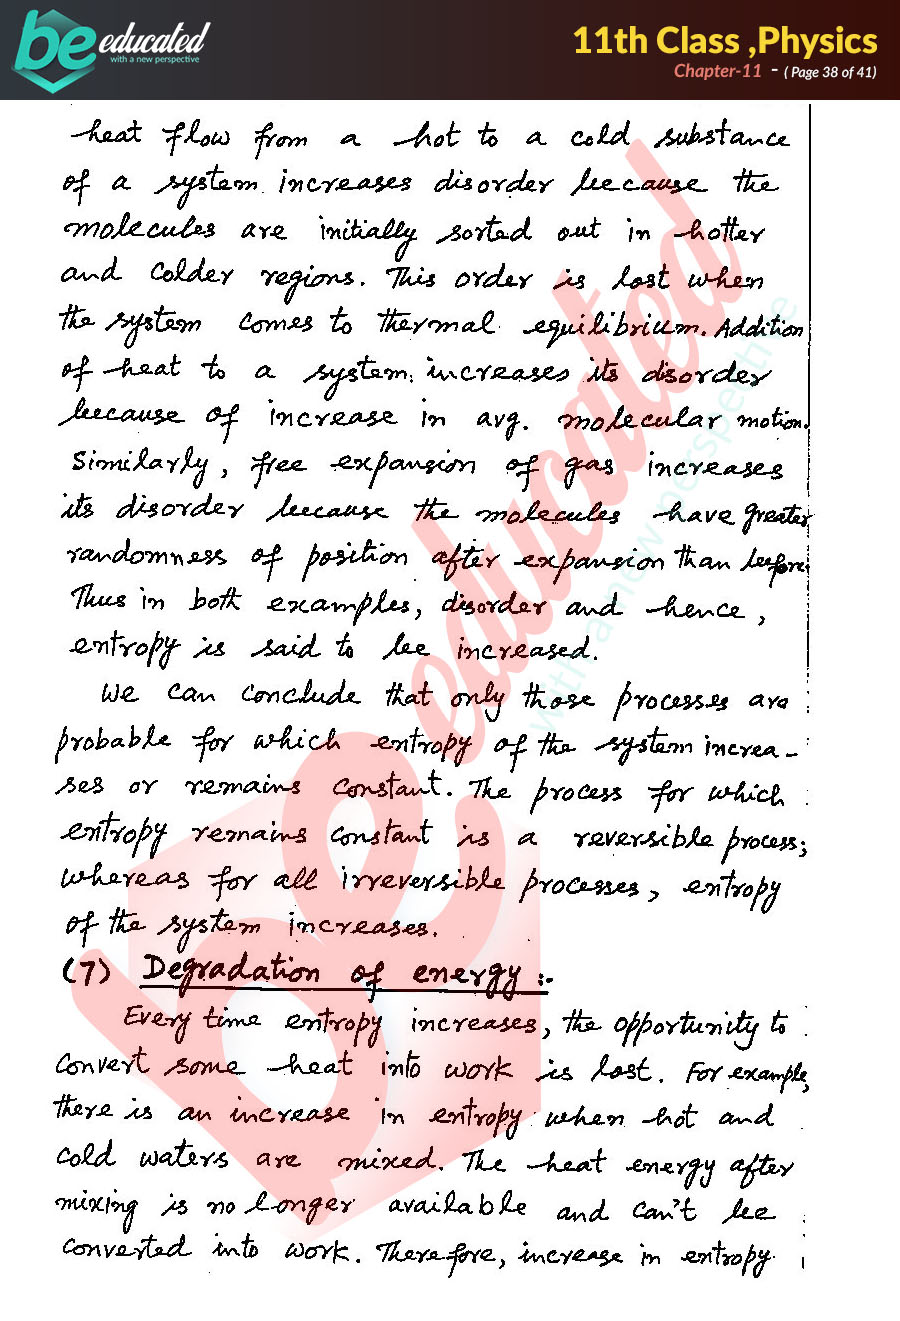 be educated
with a new perspective
11th Class ,Physics
Chapter-11 - ( Page 38 of 41)
heat flow from a hot to a cold substance
of a system increases disorder because the
molecules are initially sorted out in hotter
and colder regions. This order is lost when
the system comes to thermal equilibrium. Addition
of heat to a system, increases its disorder
because of increase in avg. molecular motion.
Similarly, free expansion of gas increases
its disorder because the molecules have greater
randomness of position after expansion than before.
Thus in both examples, disorder and hence,
entropy is said to be increased.
We can conclude that only those processes are
probable for which entropy of the system increa-
ses or remains constant. The process for which
entropy remains constant is a reversible process;
whereas for all irreversible processes, entropy
of the system increases.
(7) Degradation of energy :-
Every time entropy increases, the opportunity to
convert some heat into work is lost. For example,
there is an increase in entropy when hot and
cold waters are mixed. The heat energy after
mixing is no longer available and can't be
converted into work. Therefore, increase in entropy
be educated
with a new perspective